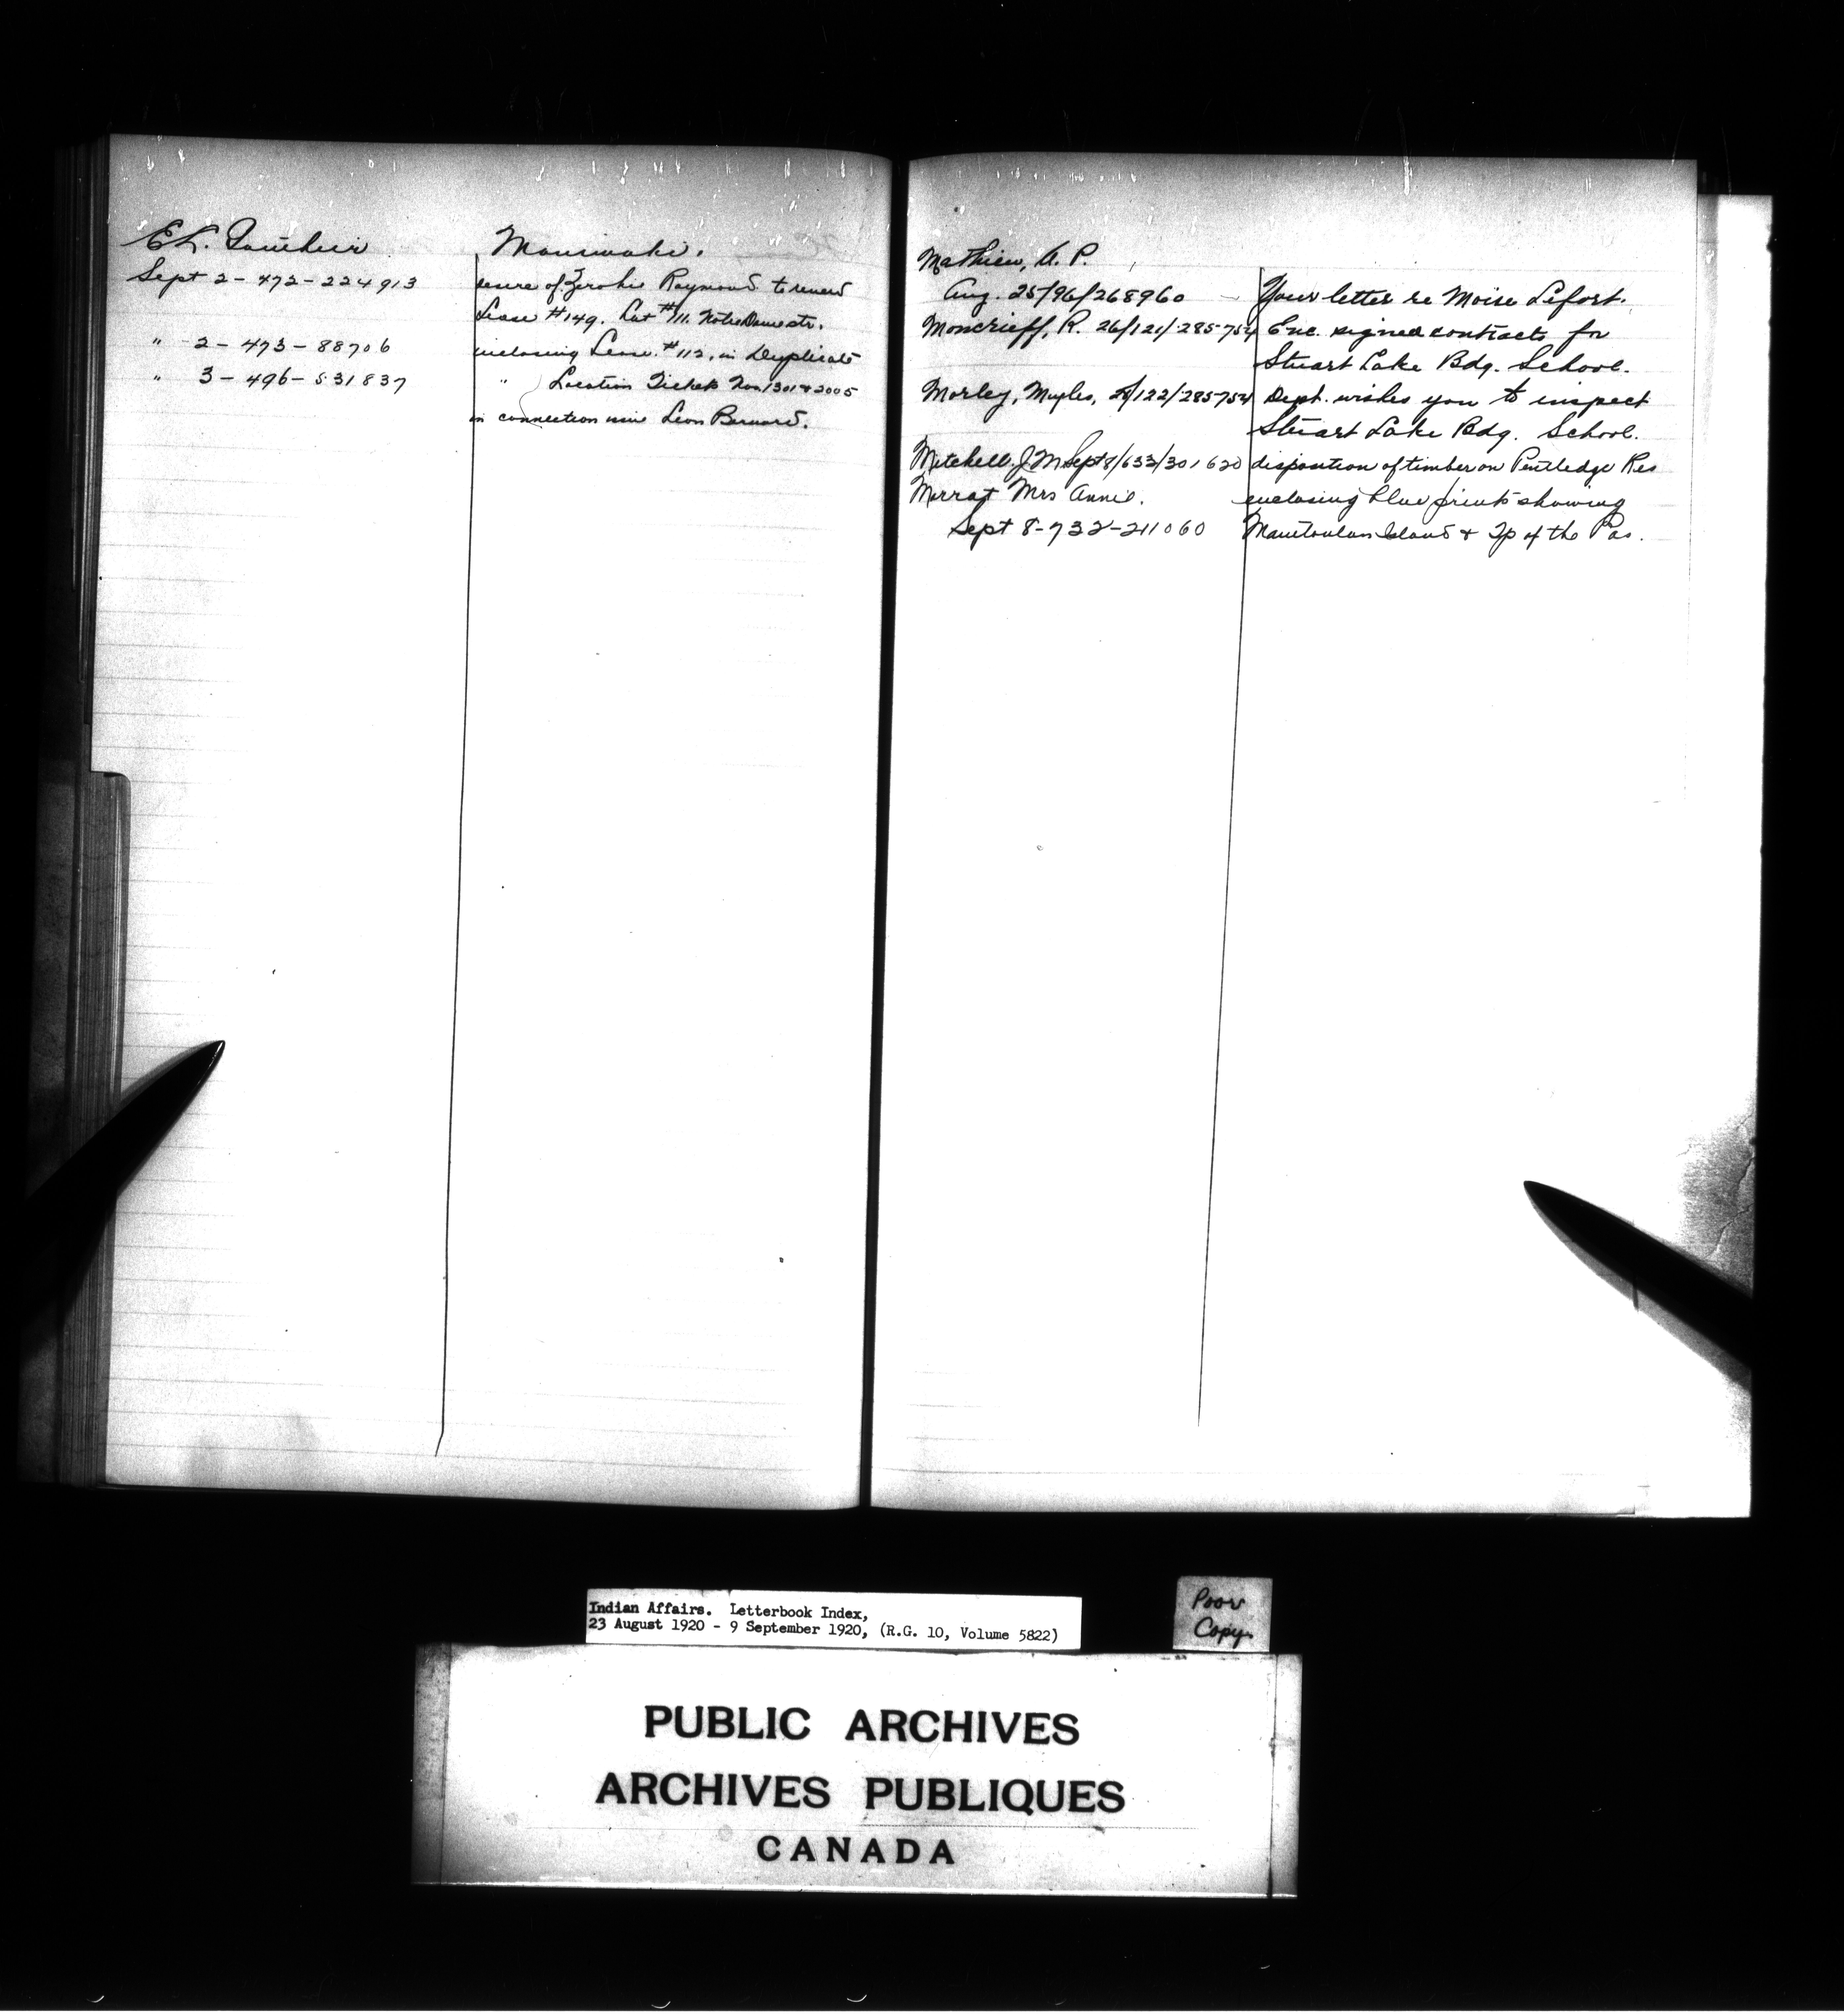 E L. Gauthier Maniwaki.
Sept 2 - 472 - 224913 desire of Zerohie Raymond to renew
Lease #149. Lot #11. Notre Dame str.
" 2 - 473 - 88706 enclosing Lease #112, in Duplicate
" 3 - 496 - 531837 " Location Tickets Nos 1301 & 2005
in connection Leon Bernard.
Mathieu, A. P.
Aug. 25/96/268960 - Your letter re Moise Lefort.
Moncrieff, R. 26/121/285754 Enc. signed contracts for
Stuart Lake Bdg. School.
Morley, Myles, 28/122/285754 Dept. wishes you to inspect
Stuart Lake Bdg. School.
Mitchell. J M Sept 8/633/301620 disposition of timber on Pentledge Res
Murray Mrs Annie. enclosing blue prints showing
Sept 8 - 732 - 211060 Manitoulin Island & Tp of the Pas.
Indian Affairs. Letterbook Index,
23 August 1920 - 9 September 1920, (R.G. 10, Volume 5822)
Poor
Copy
PUBLIC ARCHIVES
ARCHIVES PUBLIQUES
CANADA